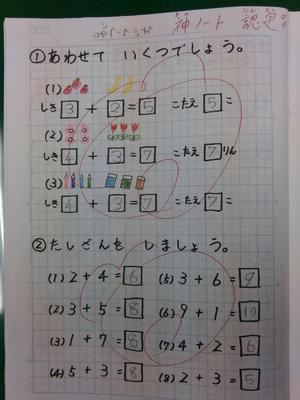 神ノート 認定
①あわせて いくつでしょう。
(1)
しき 3 + 2 = 5 こたえ 5 こ
(2)
しき 4 + 3 = 7 こたえ 7 りん
(3)
しき 4 + 3 = 7 こたえ 7 こ
②たしざんを しましょう。
(1) 2 + 4 = 6 (5) 3 + 6 = 9
(2) 3 + 5 = 8 (6) 9 + 1 = 10
(3) 1 + 7 = 8 (7) 4 + 2 = 6
(4) 5 + 3 = 8 (8) 2 + 3 = 5